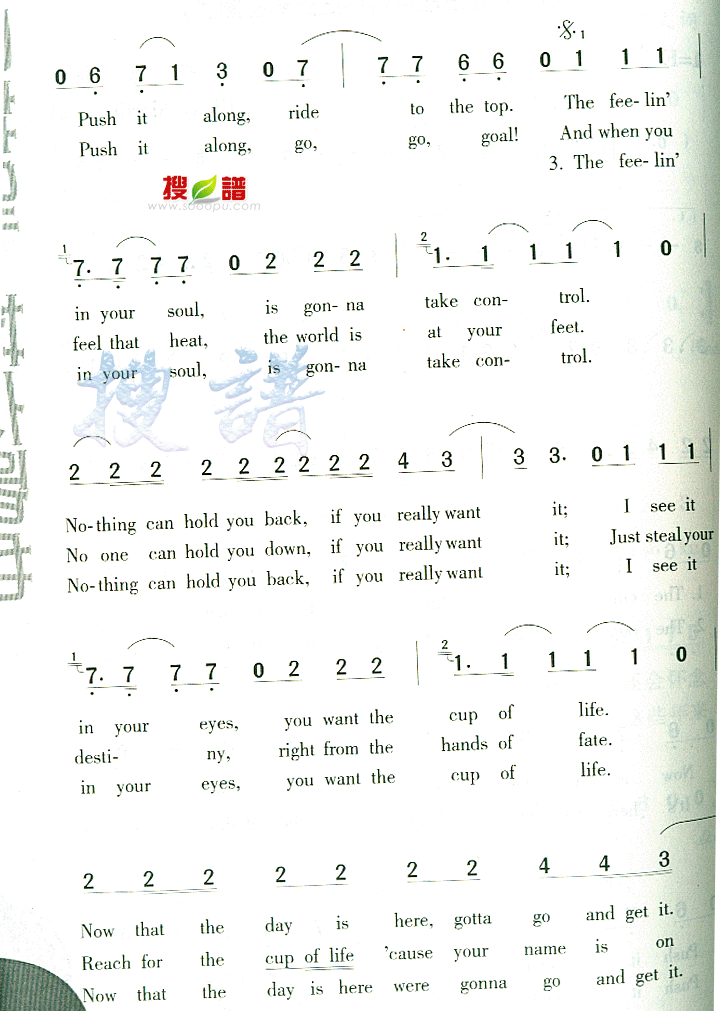 0 6 7 1 3 0 7 | 7 7 6 6 0 1 1 1
Push it along, ride to the top. The fee- lin'
Push it along, go, go, goal! And when you
3. The fee- lin'
搜譜
www.sooopu.com
1 7. 7 7 7 0 2 2 2 | 2 1. 1 1 1 1 0
in your soul, is gon- na take con- trol.
feel that heat, the world is at your feet.
in your soul, is gon- na take con- trol.
搜譜
2 2 2 2 2 2 2 2 2 4 3 | 3 3. 0 1 1 1
No-thing can hold you back, if you really want it; I see it
No one can hold you down, if you really want it; Just steal your
No-thing can hold you back, if you really want it; I see it
1 7. 7 7 7 0 2 2 2 | 2 1. 1 1 1 1 0
in your eyes, you want the cup of life.
desti- ny, right from the hands of fate.
in your eyes, you want the cup of life.
2 2 2 2 2 2 2 4 4 3
Now that the day is here, gotta go and get it.
Reach for the cup of life 'cause your name is on
Now that the day is here were gonna go and get it.